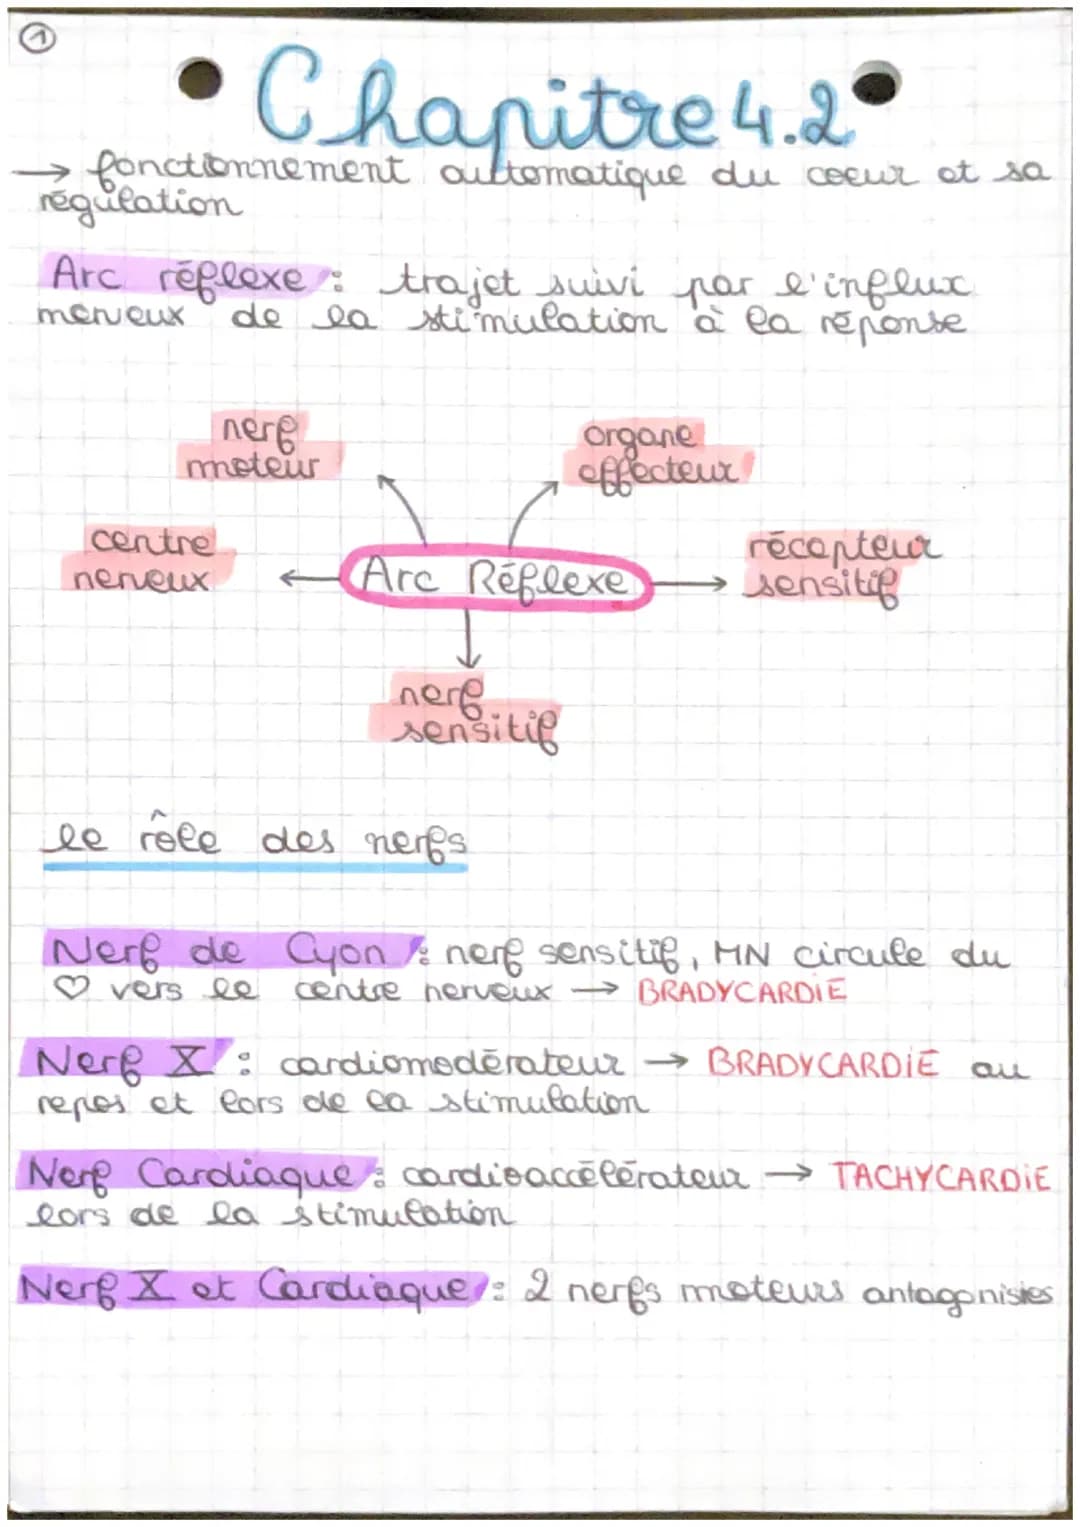 1
Chapitre 4.2
→ fonctionnement automatique du coeur et sa
régulation
Arc réflexe : trajet suivi par l'influx
nerveux de la stimulation à la réponse
nerf
moteur
organe
effecteur
centre
nerveux
Arc Réflexe
récepteur
sensitif
nerf
sensitif
le rôle des nerfs
Nerf de Cyon : nerf sensitif, MN circule du
♡ vers le centre nerveux → BRADYCARDIE
Nerf X : cardiomodérateur → BRADYCARDIE au
repos et lors de la stimulation
Nerf Cardiaque : cardioaccélérateur → TACHYCARDIE
lors de la stimulation
Nerf X et Cardiaque : 2 nerfs moteurs antagonistes